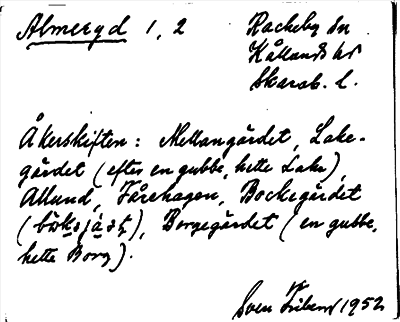 Almeryd 1, 2
Rackeby sn
Kållands hd
Skarab. l.
Åkerskiften: Mellangärdet, Lake-
gärdet (efter en gubbe, hette Lake),
Allund, Fårehagen, Bockegärdet
Borgegärdet (en gubbe,
hette Borg).
Sven 1952